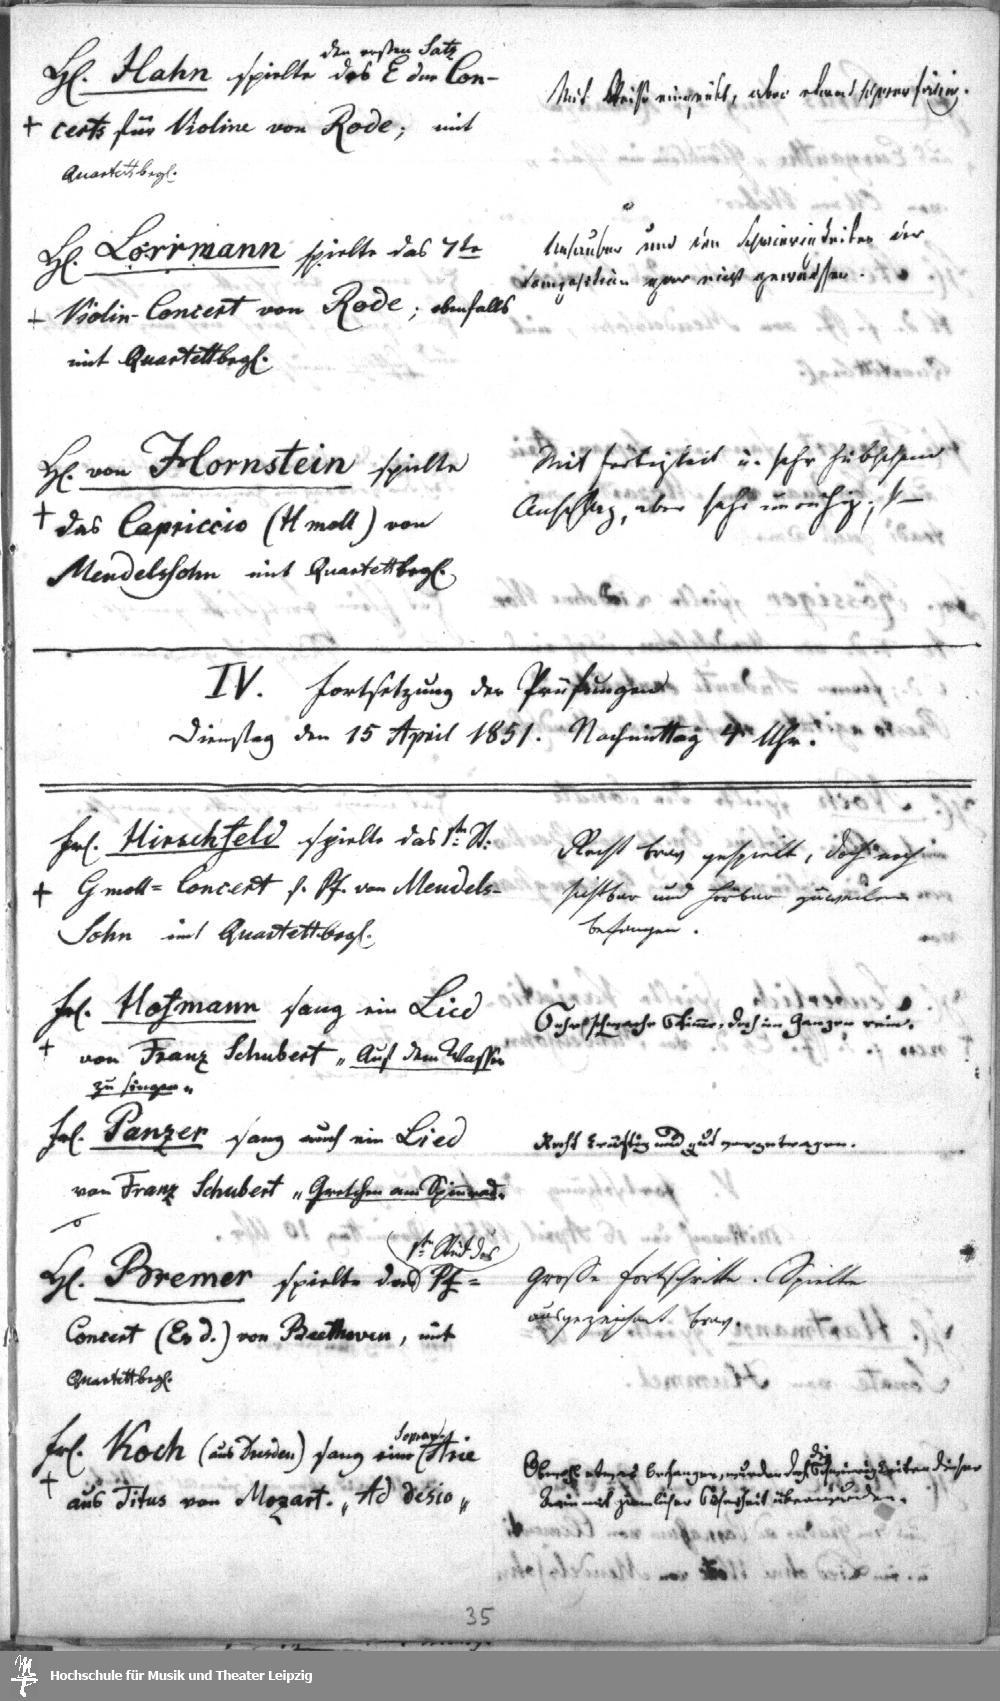 den ersten Satz
H. Hahn spielte des E dur Con-
certs für Violine von Rode; mit
Quartettbegl.
Mit Fleiß eingeübt, aber etwas schwerfällig.
H. Lorrmann spielte das 7te
Violin-Concert von Rode; ebenfalls
mit Quartettbegl.
Unsauber und den Schwierigkeiten der
Composition gar nicht gewachsen.
H. von Hornstein spielte
das Capriccio (H moll) von
Mendelssohn mit Quartettbegl.
Mit Fertigkeit u. sehr hübschem
Anschlag, aber sehr unruhig;
IV. Fortsetzung der Prüfungen
Dienstag den 15 April 1851. Nachmittag 4 Uhr.
Frl. Hirschfeld spielte das 1te St:
G moll-Concert f. Pf. von Mendels-
sohn mit Quartettbegl.
Recht brav gespielt, doch noch
sichtbar und hörbar zuweilen
befangen.
Frl. Hofmann sang ein Lied
von Franz Schubert „Auf dem Wasser
zu singen"
Sehr schwache Stimme, doch im Ganzen rein.
Frl. Panzer sang auch ein Lied
von Franz Schubert „Gretchen am Spinnrad"
Recht kräftig und gut vorgetragen.
1te Stück des
H. Bremer spielte das Pf-
Concert (Es d.) von Beethoven, mit
Quartettbegl.
Grosse Fortschritte. Spielte
ausgezeichnet brav.
Sopran-
Frl. Koch (aus Dresden) sang eine Arie
aus Titus von Mozart. „Ad desio"
Obwohl etwas befangen, wurden doch die Schwierigkeiten dieser
Arie mit ziemlicher Sicherheit überwunden.
35
Hochschule für Musik und Theater Leipzig